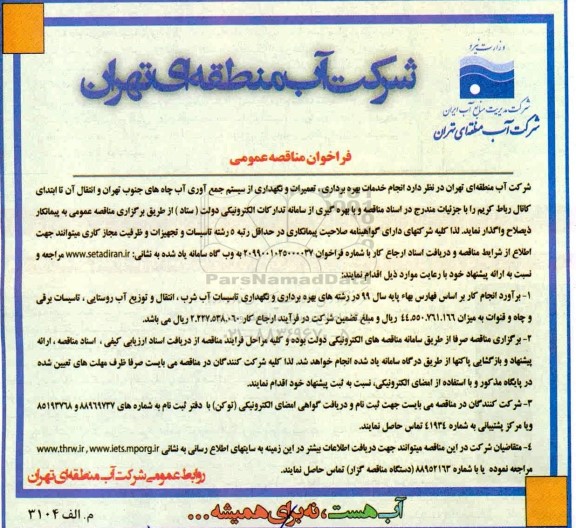 وزارت نیرو
شرکت مدیریت منابع آب ایران
شرکت آب منطقه‌ای تهران
شرکت آب منطقه‌ای تهران
فراخوان مناقصه عمومی
شرکت آب منطقه‌ای تهران در نظر دارد انجام خدمات بهره برداری، تعمیرات و نگهداری از سیستم جمع آوری آب چاه های جنوب تهران و انتقال آن تا ابتدای
کانال رباط کریم را با جزئیات مندرج در اسناد مناقصه و با بهره گیری از سامانه تدارکات الکترونیکی دولت (ستاد) از طریق برگزاری مناقصه عمومی به پیمانکار
ذیصلاح واگذار نماید. لذا کلیه شرکتهای دارای گواهینامه صلاحیت پیمانکاری در حداقل رتبه ۵ رشته تاسیسات و تجهیزات و ظرفیت مجاز کاری میتوانند جهت
اطلاع از شرایط مناقصه و دریافت اسناد ارجاع کار با شماره فراخوان ۲۰۹۹۰۰۱۰۲۵۰۰۰۰۳۷ به وب گاه سامانه یاد شده به نشانی: www.setadiran.ir مراجعه و
نسبت به ارائه پیشنهاد خود با رعایت موارد ذیل اقدام نمایند:
۱- برآورد انجام کار بر اساس فهارس بهاء پایه سال ۹۹ در رشته های بهره برداری و نگهداری تاسیسات آب شرب، انتقال و توزیع آب روستایی، تاسیسات برقی
و چاه و قنوات به میزان ۴۴.۵۵۰.۷۶۱.۱۶۶ ریال و مبلغ تضمین شرکت در فرآیند ارجاع کار ۲.۲۲۷.۵۳۸.۰۶۰ ریال می باشد.
۲- برگزاری مناقصه صرفا از طریق سامانه مناقصه های الکترونیکی دولت بوده و کلیه مراحل فرآیند مناقصه از دریافت اسناد ارزیابی کیفی، اسناد مناقصه، ارائه
پیشنهاد و بازگشایی پاکتها از طریق درگاه سامانه یاد شده انجام خواهد شد. لذا کلیه شرکت کنندگان در مناقصه می بایست صرفا ظرف مهلت های تعیین شده
در پایگاه مذکور و با استفاده از امضای الکترونیکی، نسبت به ثبت پیشنهاد خود اقدام نمایند.
۳- شرکت کنندگان در مناقصه می بایست جهت ثبت نام و دریافت گواهی امضای الکترونیکی (توکن) با دفتر ثبت نام به شماره های ۸۸۹۶۹۷۳۷ و ۸۵۱۹۳۷۶۸
ویا مرکز پشتیبانی به شماره ۴۱۹۳۴ تماس حاصل نمایند.
۴- متقاضیان شرکت در این مناقصه میتوانند جهت دریافت اطلاعات بیشتر در این زمینه به سایتهای اطلاع رسانی به نشانی www.thrw.ir, www.iets.mporg.ir
مراجعه نموده یا با شماره ۸۸۹۵۲۱۶۳ (دستگاه مناقصه گزار) تماس حاصل نمایند.
روابط عمومی شرکت آب منطقه‌ای تهران
آب هست، نه برای همیشه...
م. الف ۳۱۰۴
ParsNamadData